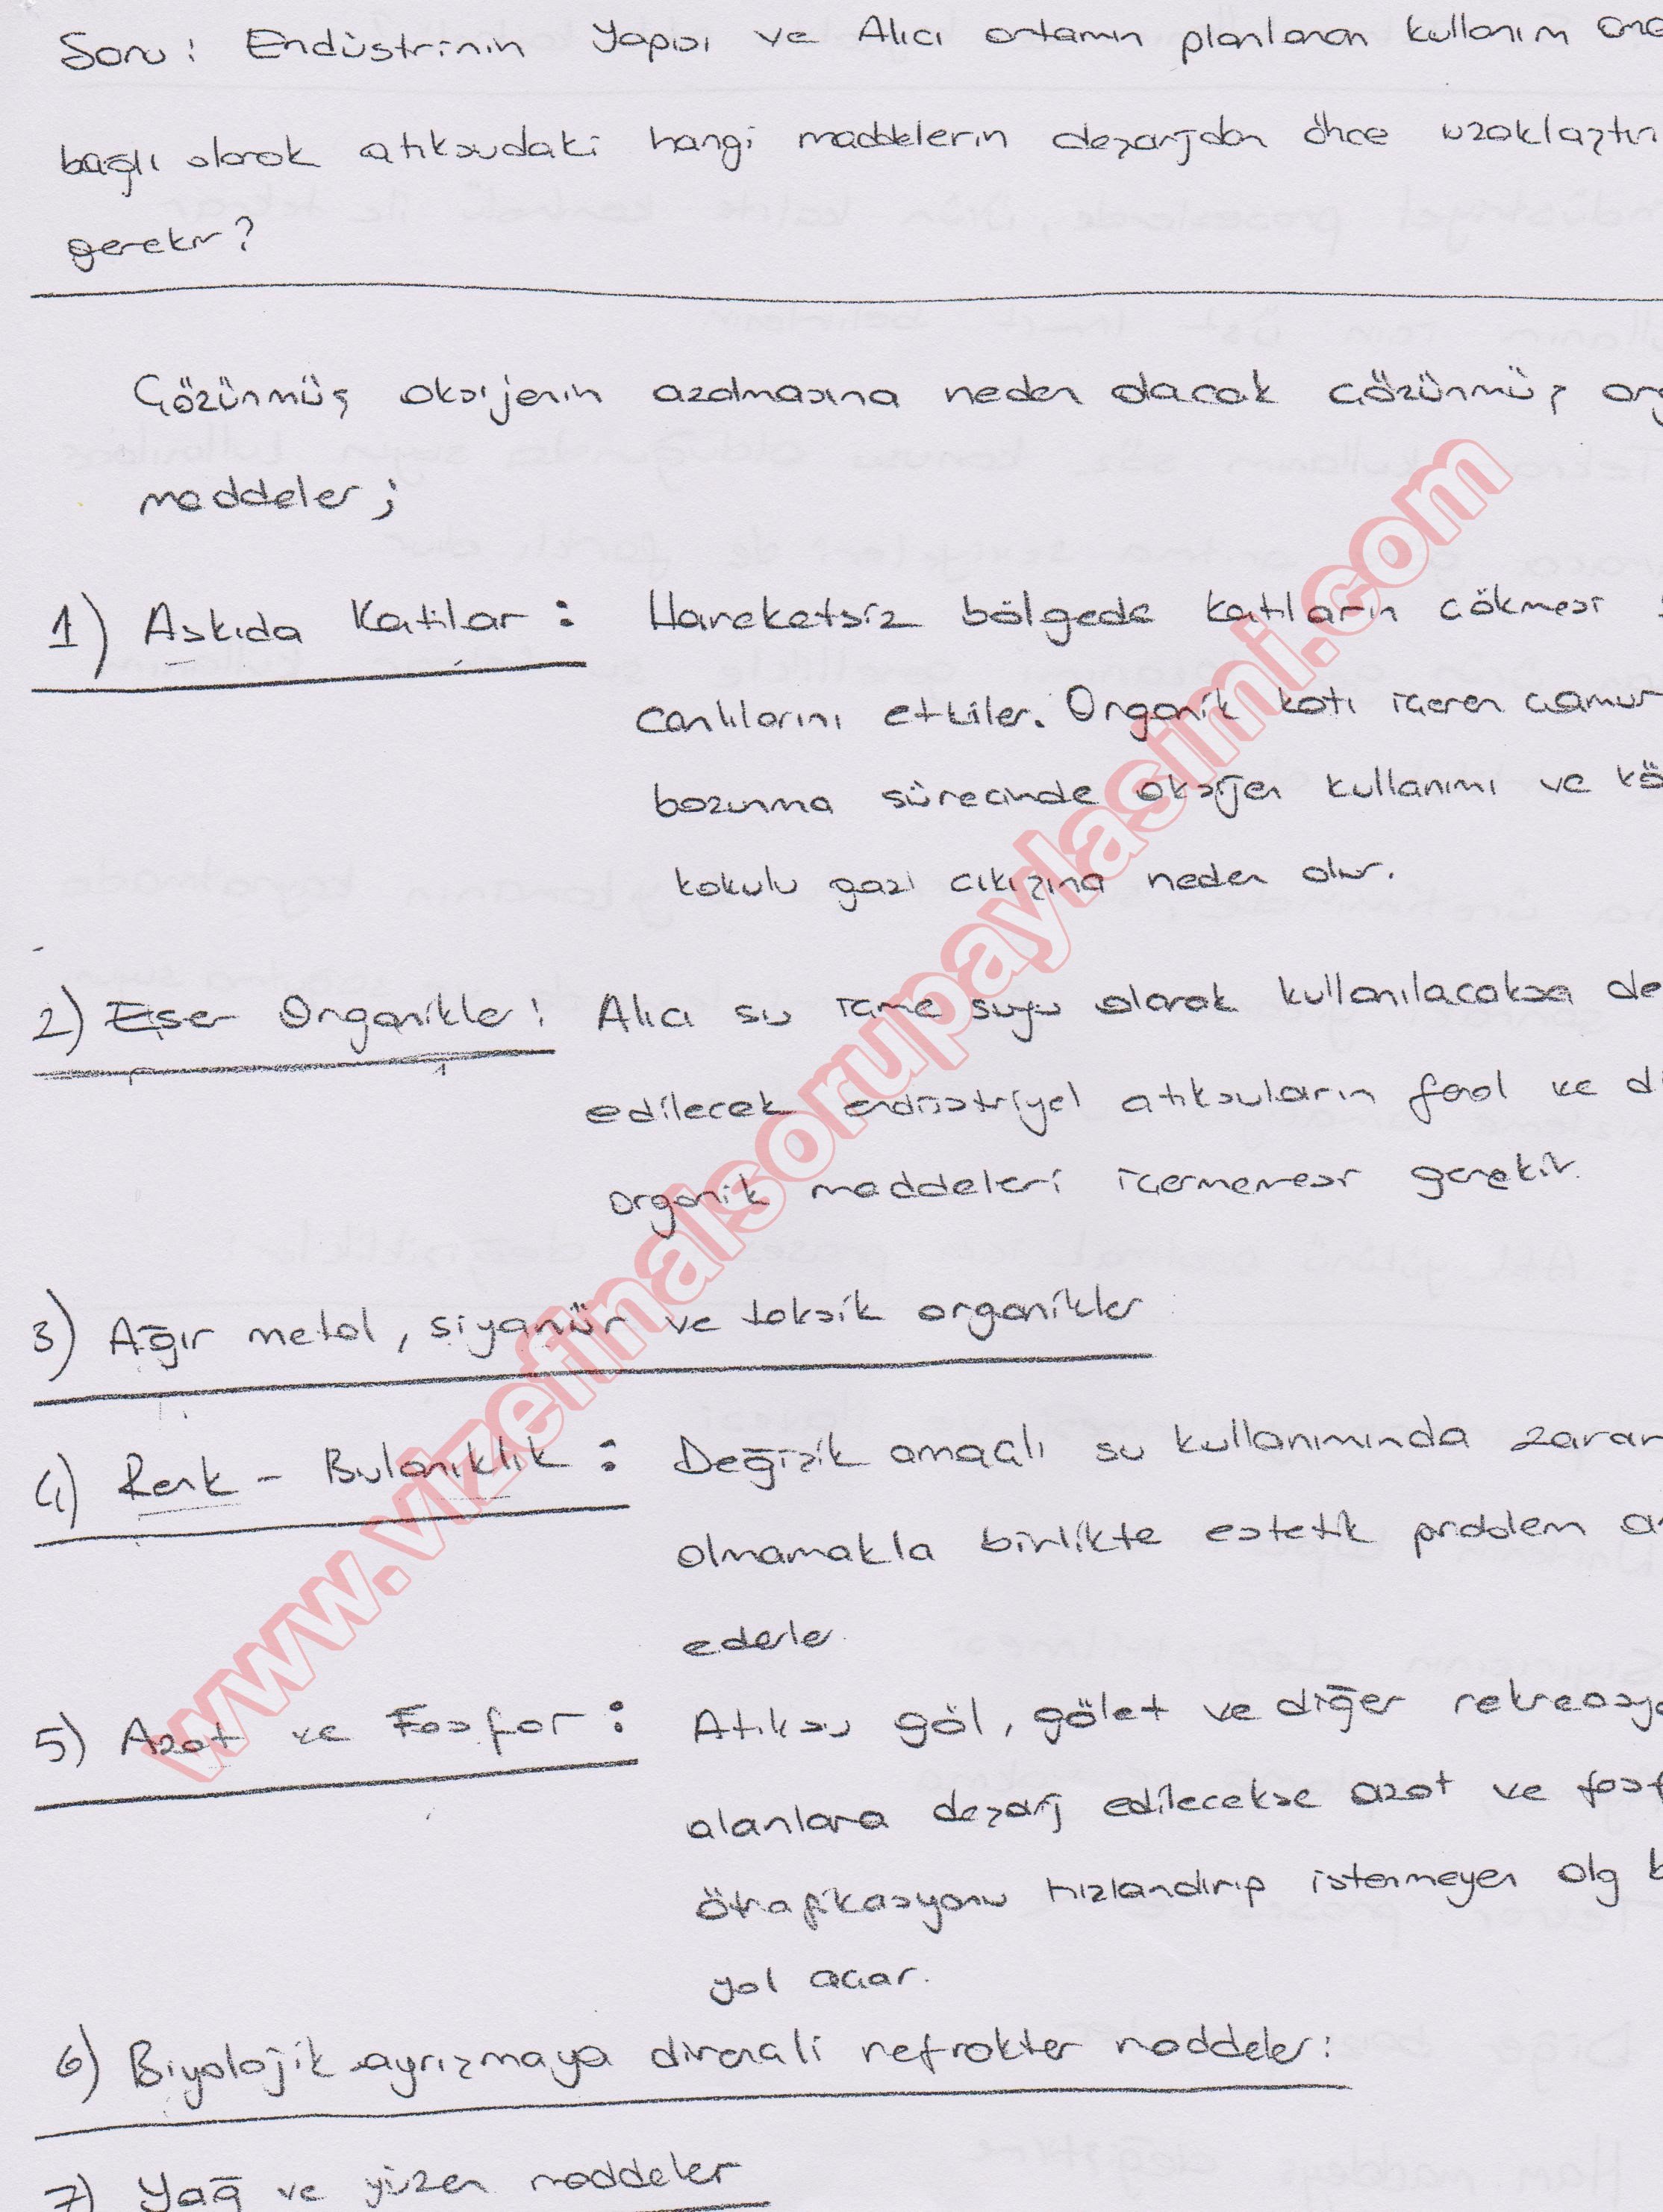 Soru: Endüstrinin Yapısı ve Alıcı ortamın planlanan kullanım
bağlı olarak atıksudaki hangi maddelerin deşarjdan önce uzaklaştırı
gerekir?
Çözünmüş oksijenin azalmasına neden olacak çözünmüş org
maddeler;
1) Askıda Katılar: Hareketsiz bölgede katıların çökmesi
canlılarını etkiler. Organik katı içeren çamur
bozunma sürecinde oksijen kullanımı ve kö
kokulu gazı çıkışına neden olur.
2) Eser Organikler: Alıcı su içme suyu olarak kullanılacaksa de
edilecek endüstriyel atıksuların fenol ve di
organik maddeleri içermemesi gerekir.
3) Ağır metal, siyanür ve toksik organikler
4) Renk - Bulanıklık: Değişik amaçlı su kullanımında zarar
olmamakla birlikte estetik problem ar
ederler.
5) Azot ve Fosfor: Atıksu göl, gölet ve diğer rekreasyo
alanlara deşarj edilecekse azot ve fosf
ötrafikasyonu hızlandırıp istenmeyen alg b
yol açar.
6) Biyolojik ayrışmaya dirençli refrakter maddeler:
7) Yağ ve yüzen maddeler
www.vizefinalsorupaylasimi.com